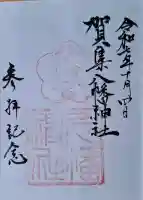 令和七年十月四日
賀集八幡神社
参拝記念